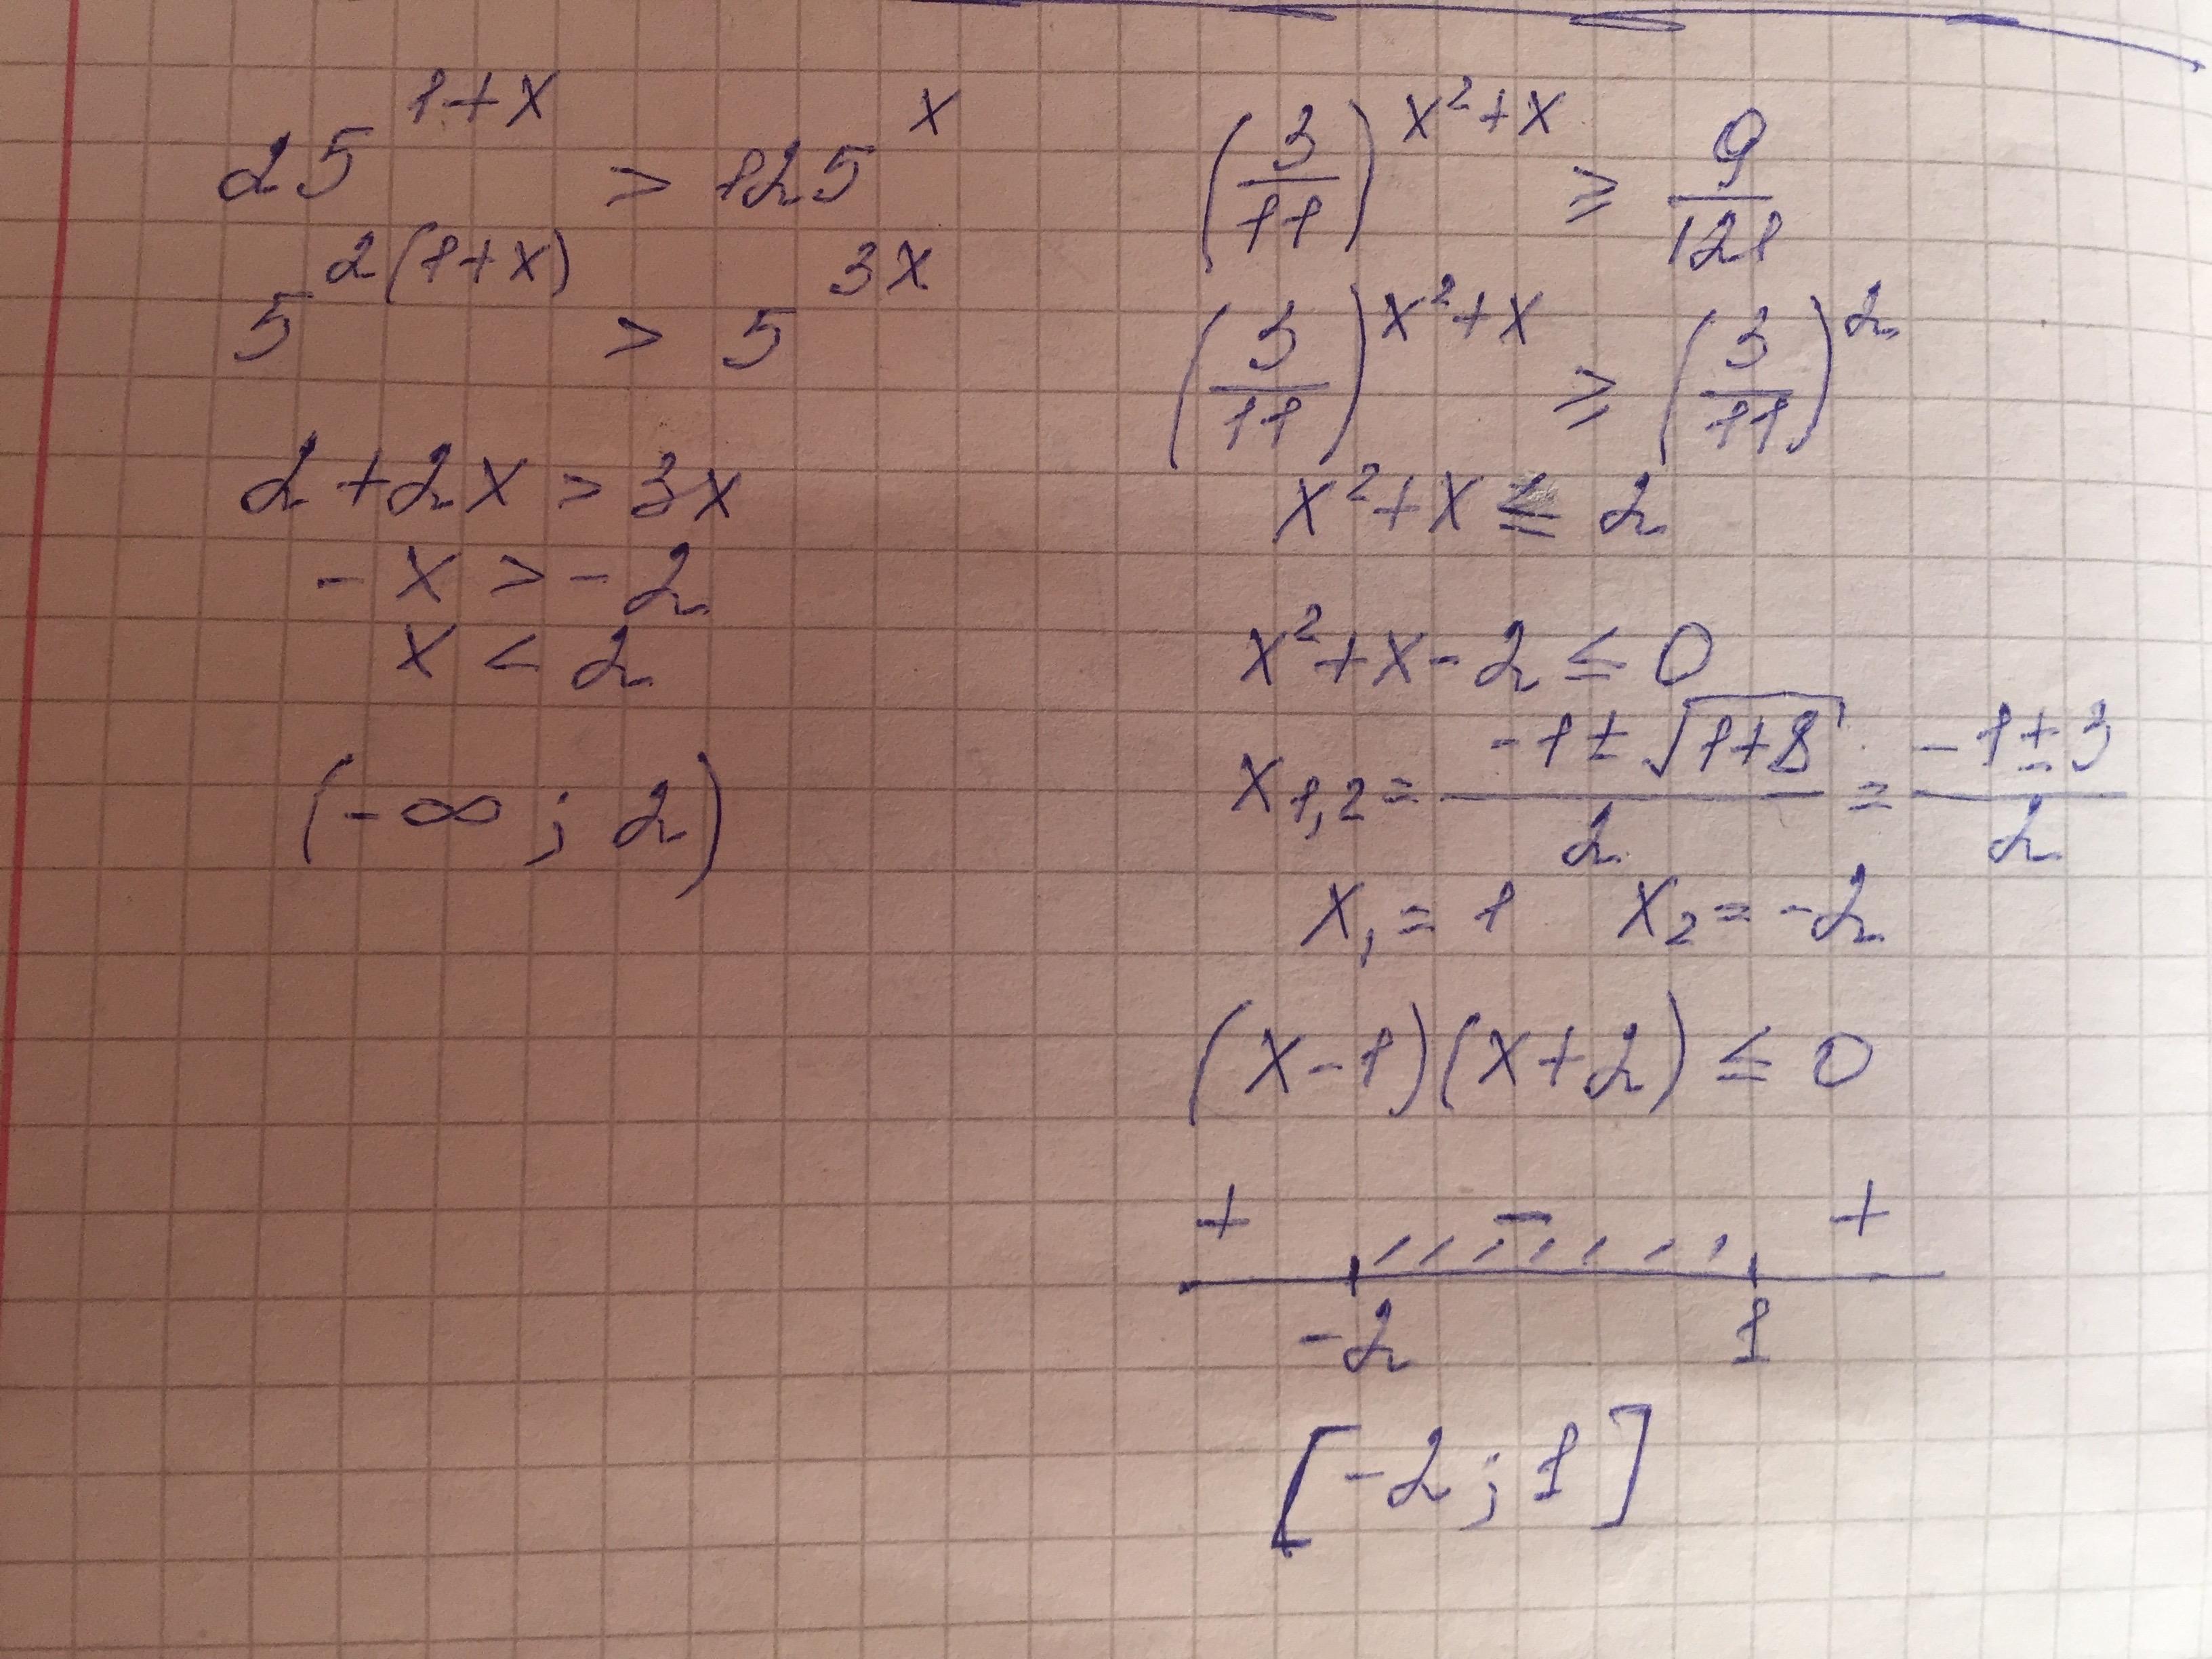 25^{1+x} > 125^x
5^{2(1+x)} > 5^{3x}
2+2x > 3x
-x > -2
x < 2
(-∞; 2)
(3/11)^{x²+x} ≥ 9/121
(3/11)^{x²+x} ≥ (3/11)^2
x²+x ≤ 2
x²+x-2 ≤ 0
x_{1,2} = (-1±√(1+8))/2 = (-1±3)/2
x_1 = 1 x_2 = -2
(x-1)(x+2) ≤ 0
+ - +
-2 1
[-2; 1]